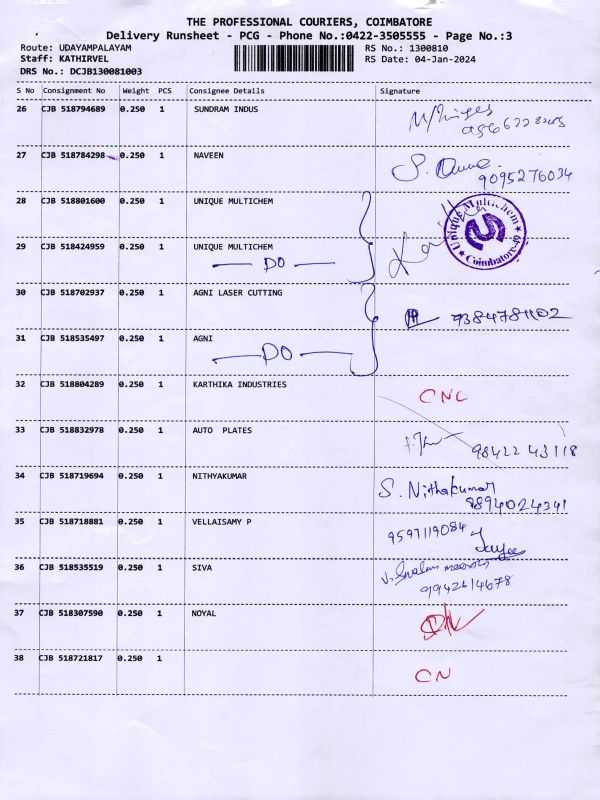 THE PROFESSIONAL COURIERS, COIMBATORE
Delivery Runsheet - PCG - Phone No.:0422-3505555 - Page No.:3
Route: UDAYAMPALAYAM RS No.: 1300810
Staff: KATHIRVEL RS Date: 04-Jan-2024
DRS No.: DCJB130081003
S No Consignment No Weight PCS Consignee Details Signature
26 CJB 518794689 0.250 1 SUNDRAM INDUS
27 CJB 518784298 0.250 1 NAVEEN
9095276034
28 CJB 518801600 0.250 1 UNIQUE MULTICHEM
Unique Multichem
Coimbatore-49
29 CJB 518424959 0.250 1 UNIQUE MULTICHEM
DO
30 CJB 518702937 0.250 1 AGNI LASER CUTTING
9384781102
31 CJB 518535497 0.250 1 AGNI
DO
32 CJB 518804289 0.250 1 KARTHIKA INDUSTRIES CNL
33 CJB 518832978 0.250 1 AUTO PLATES
98422 43118
34 CJB 518719694 0.250 1 NITHYAKUMAR S. Nithakumar
8894024341
35 CJB 518718881 0.250 1 VELLAISAMY P 9597119084
36 CJB 518535519 0.250 1 SIVA
9942614678
37 CJB 518307590 0.250 1 NOYAL
38 CJB 518721817 0.250 1 CN